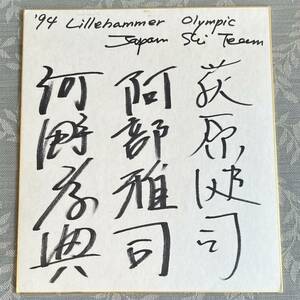 '94 Lillehammer Olympic
Japan Ski Team
荻原健司
阿部雅司
河野孝典